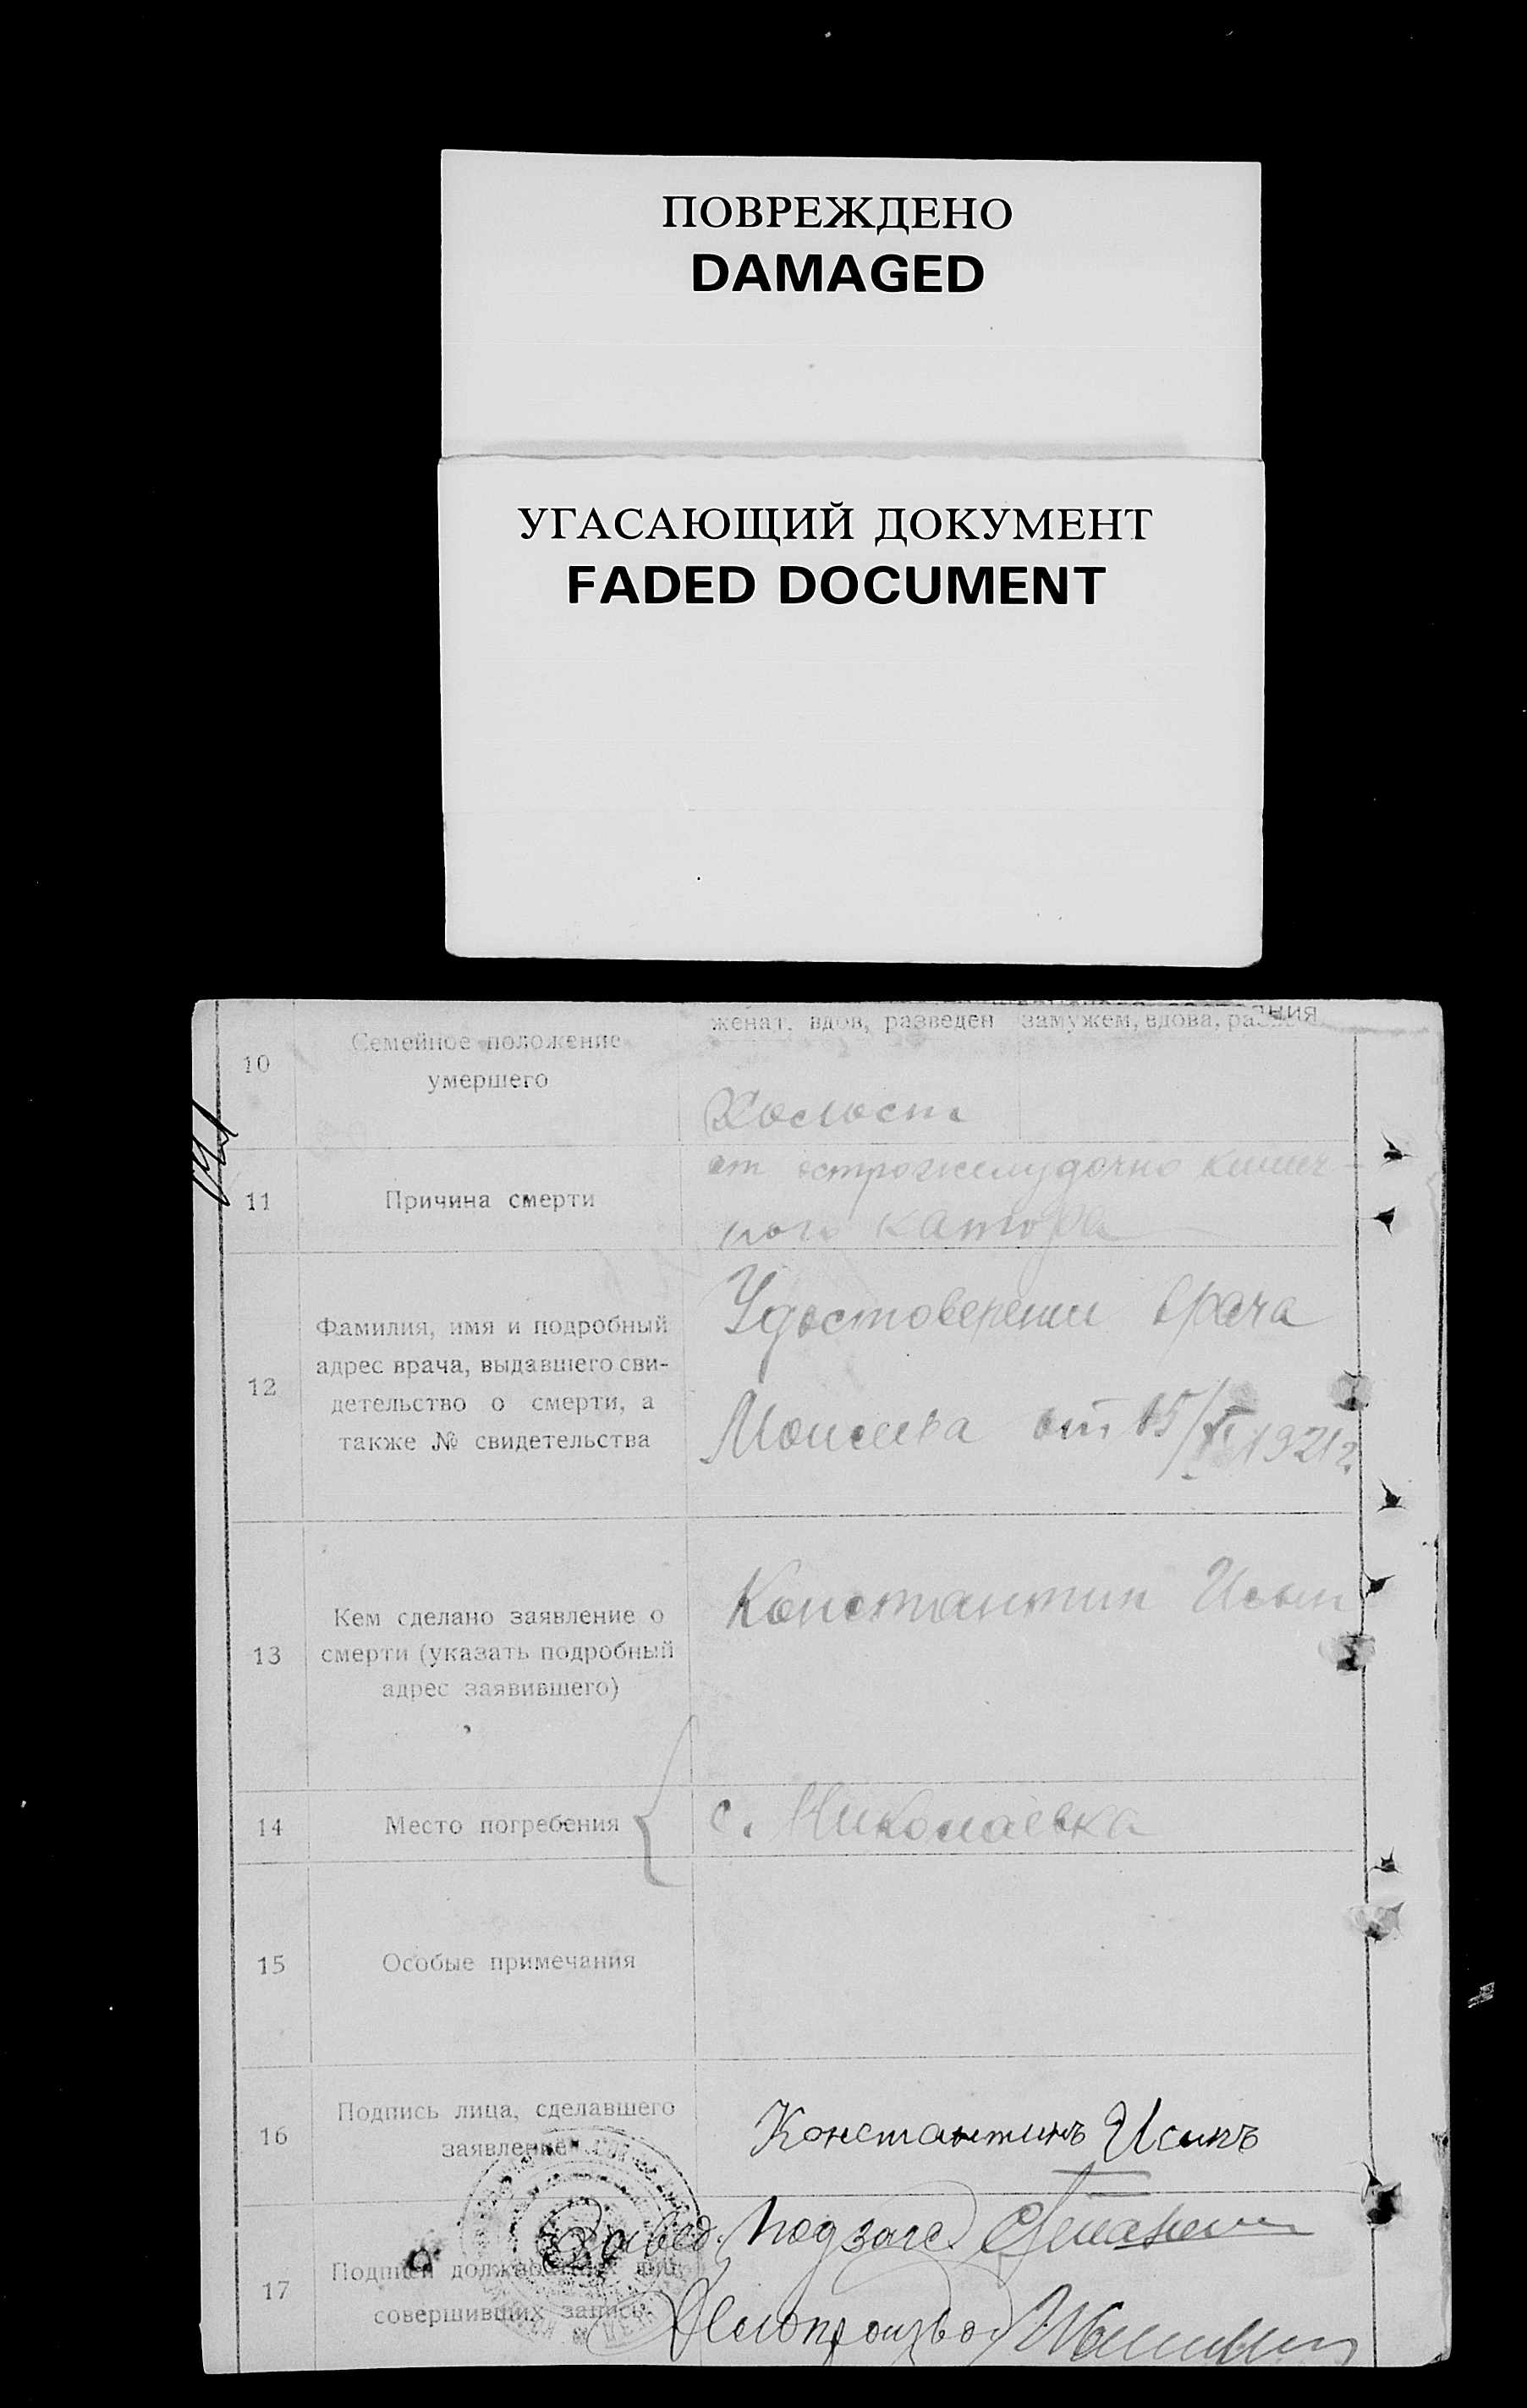 ПОВРЕЖДЕНО
DAMAGED
УГАСАЮЩИЙ ДОКУМЕНТ
FADED DOCUMENT
женат, вдов, разведен замужем, вдова,
10
Семейное положение
умершего
Холост
11
Причина смерти
от острожелудочно кишеч-
ного катора
12
Фамилия, имя и подробный
адрес врача, выдавшего сви-
детельство о смерти, а
также № свидетельства
Удостоверении врача
от 15/ 1921 г.
13
Кем сделано заявление о
смерти (указать подробный
адрес заявившего)
Константин Исын
14
Место погребения
с. Николаевка
15
Особые примечания
16
Подпись лица, сделавшего
заявление
Константинъ
17
Подписи должностных лиц,
совершивших запись
Завед. Подзагс
Делопроизвод